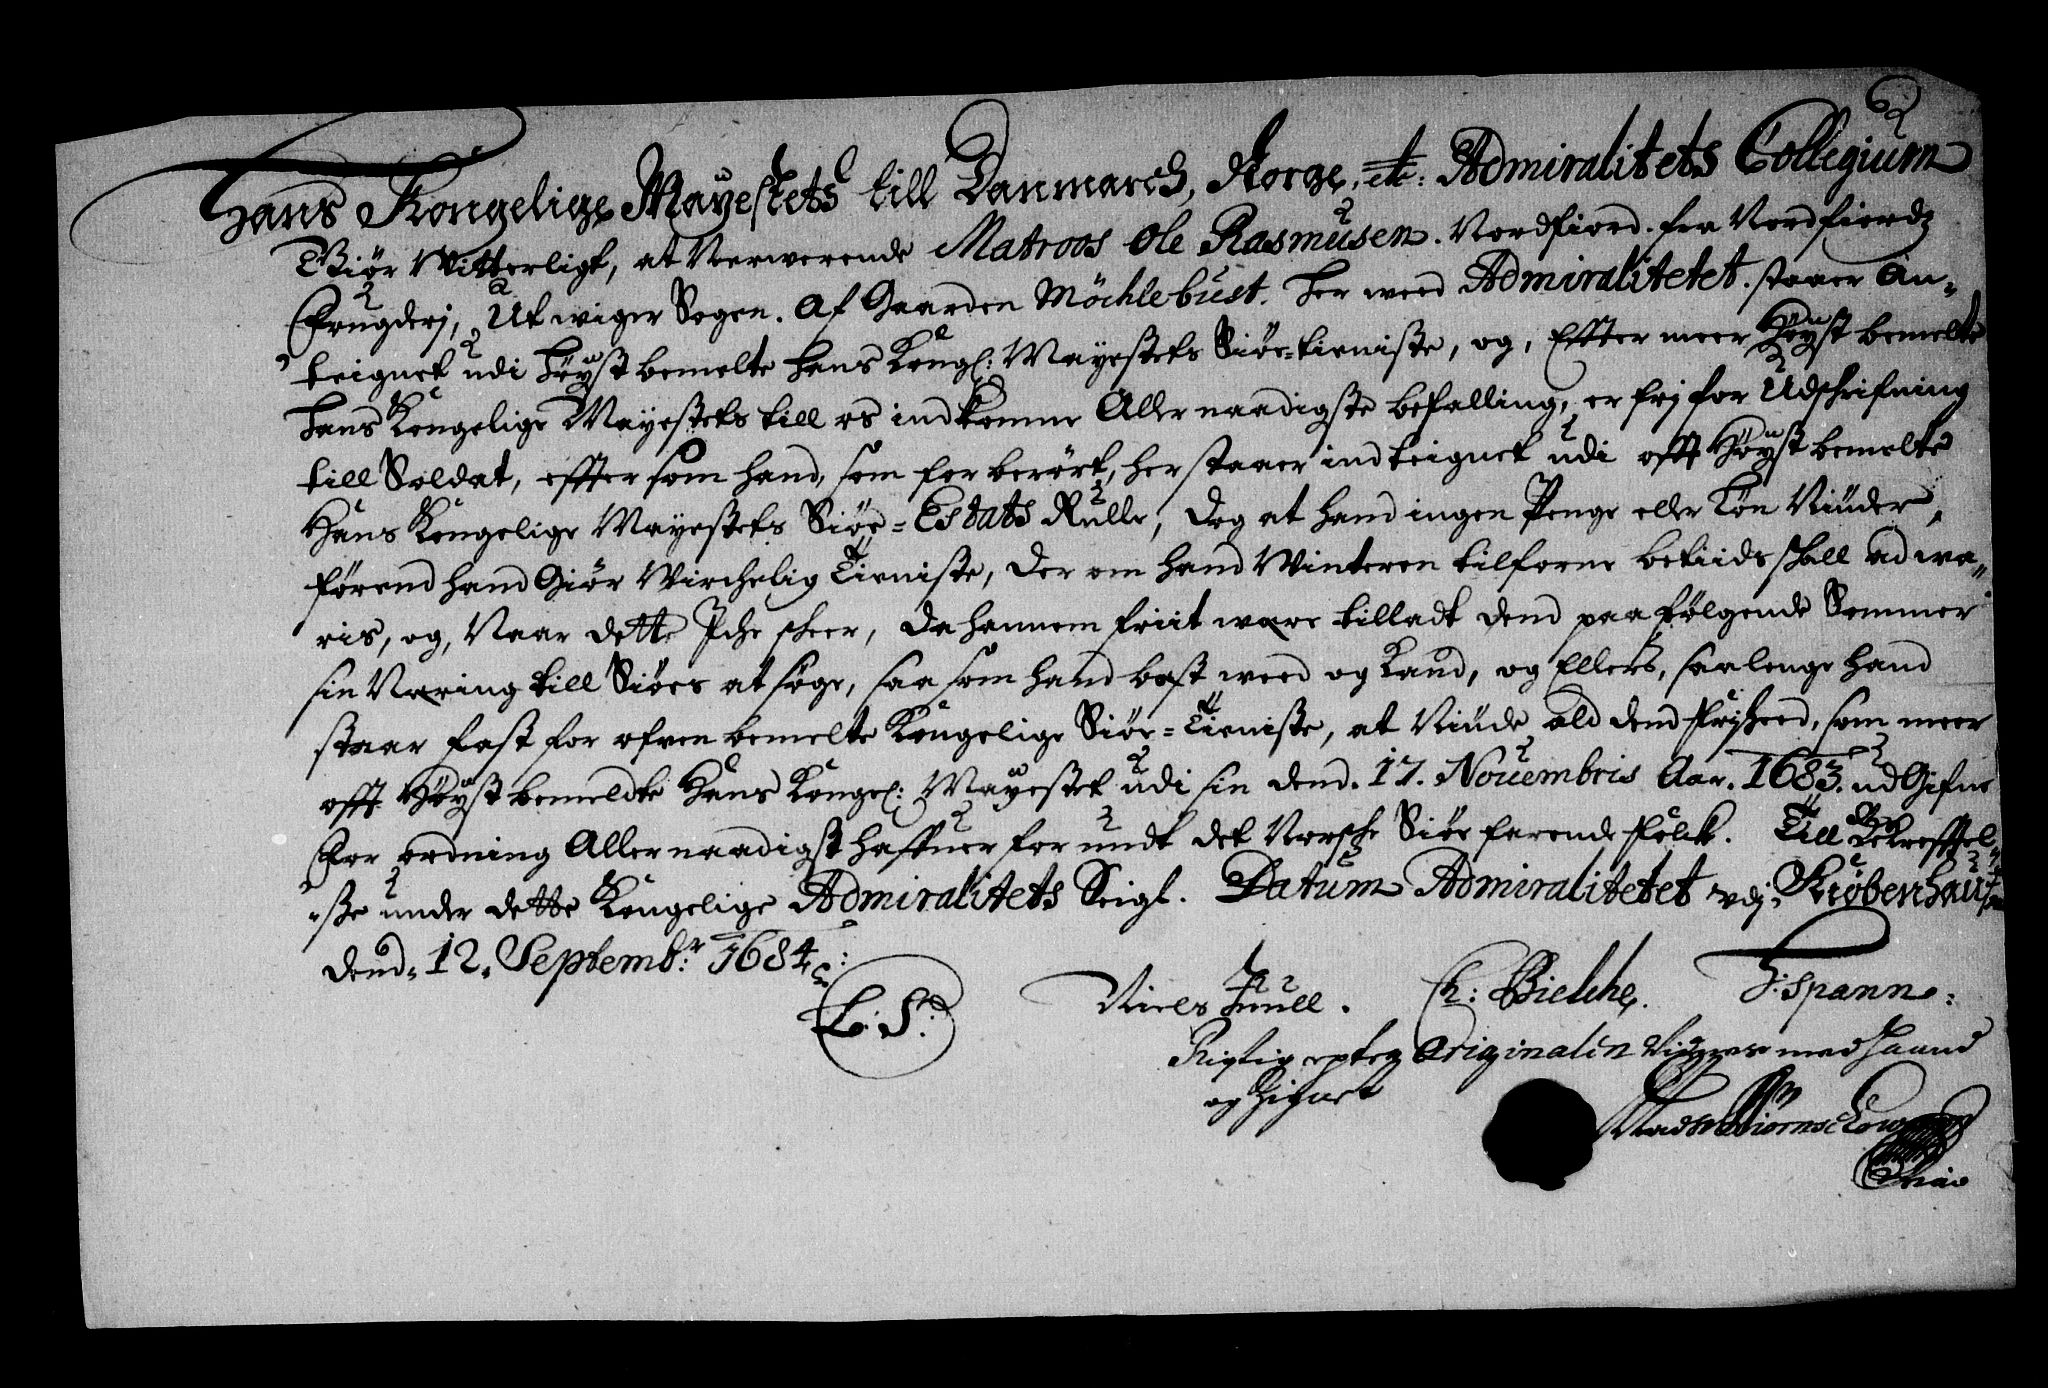 Hans Kongelige Mayestets till Danmarck, Norge, etc: Admiralitets Collegium
Giör Witterligt, at Nerwerende Matroos Ole Rasmusen. Nordfiord. fra Nordfiords
Fougderj, Utwiger Sogen. Af Gaarden Möchlebust. Her weed Admiralitetet. staaer An„
teignet udi Höyst bemelte Hans Kongl: Mayestets Siöe-tieniste, og, Effter meer Höyst bemelte
Hans Kongelige Mayestets till os indkomne Aller naadigste befalling, er frj for Udschrifning
till Soldat, effter som hand, som forberört, her staaer indteignet udi offt Höyst bemelte
Hans Kongelige Mayestets Siöe-Estats Rulle, Dog at hand ingen Penge eller Lön Niuder,
förend hand Giör Wirchelig Tieniste, Der om hand Winteren tilforne betiids shall adwa„
ris, og, Naar dette Iche scheer, Da hannem friit være tilladt dend paafölgende Sommer
sin Næring till Siöes at söge, saa som hand best weed og Kand, og Ellers, saalenge hand
staar fast for ofvenbemelte Kongelige Siöe-Tieniste, at Niude ald dend Frjheed, som meer
offt Höyst bemeldte Hans Kongel: Mayestet udi sin dend. 17. Nouembris Aar. 1683. udGifne
Forordning Aller naadigst haffuer forundt det Norsche Siöefarende Folck. Till Bekrefftel„
„se under dette Kongelige Admiralitets Seigl. Datum Admiralitetet udj Kiöbenhaufn
dend. 12. Septemb:r 1684.
L: S:
Niels Juull. C: Bielche. J: Spann:
Rigtig epter Originalin Vidner med Haand
og Zignet